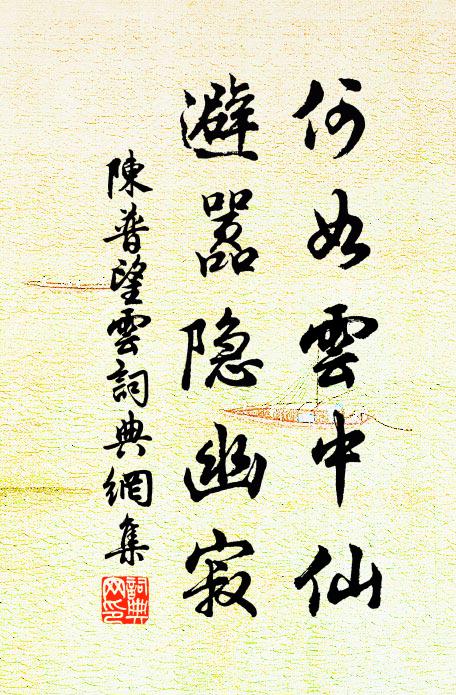 何如雲中仙
避嚣隐幽寂
陳普望雲詞典網集
詞典網印